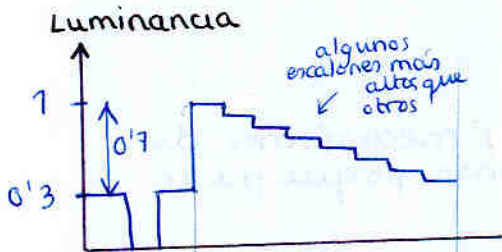 Luminancia
algunos
escalones más
altos que
otros
1
0'7
0'3